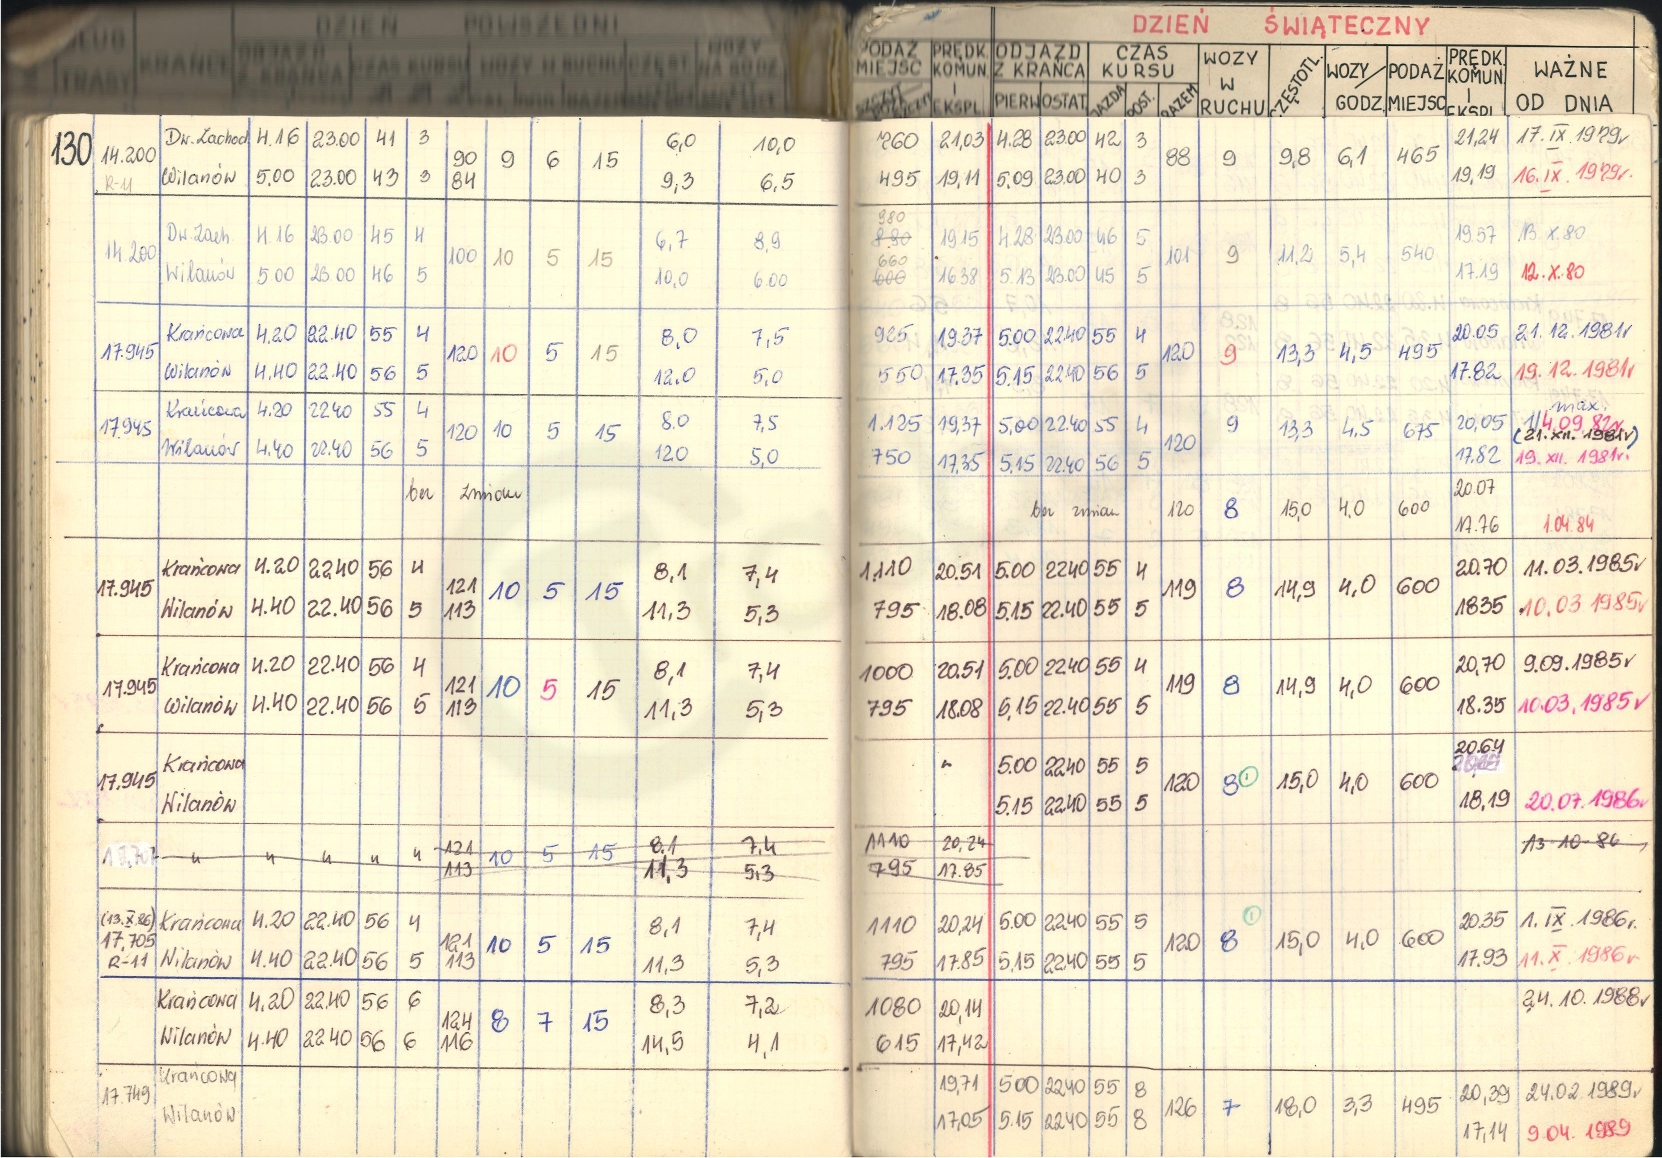 DZIEŃ POWSZEDNI
DZIEŃ ŚWIĄTECZNY
TRASY KRAŃCE ODJAZD Z KRAŃCA CZAS KURSU WOZY W RUCHU CZĘST. WOZY NA GODZ.
PODAŻ MIEJSC PRĘDK. KOMUN. I EKSPL. ODJAZD Z KRAŃCA PIERW OSTAT. CZAS KURSU JAZDA POST. RAZEM WOZY W RUCHU CZĘSTOTL. WOZY/GODZ. PODAŻ MIEJSC PRĘDK. KOMUN. I EKSPL. WAŻNE OD DNIA
130 14.200 R-11
Dw. Zachod 4.16 23.00 41 3 90 9 6 15 6,0 10,0 760 21,03 4.28 23.00 42 3 88 9 9,8 6,1 465 21,24 17. IX. 1979r
Wilanów 5.00 23.00 43 3 84 9,3 6,5 495 19,11 5.09 23.00 40 3 19,19 16. IX. 1979r.
14.200
Dw. Zach. 4.16 23.00 45 4 100 10 5 15 6,7 8,9 980 880 19.15 4.28 23.00 46 5 101 9 11,2 5,4 540 19.57 13. X. 80
Wilanów 5.00 23.00 46 5 10,0 6.00 660 600 16.38 5.13 23.00 45 5 17.19 12. X. 80
17.945
Krańcowa 4.20 22.40 55 4 120 10 5 15 8,0 7,5 925 19.37 5.00 22.40 55 4 120 9 13,3 4,5 495 20.05 21. 12. 1981r
Wilanów 4.40 22.40 56 5 12.0 5,0 550 17.35 5.15 22.40 56 5 17.82 19. 12. 1981r
17.945
Krańcowa 4.20 22.40 55 4 120 10 5 15 8.0 7,5 1.125 19,37 5,00 22.40 55 4 120 9 13,3 4,5 675 20,05 max. 14.09 82r (21. XII. 1981r)
Wilanów 4.40 22.40 56 5 120 5,0 750 17,35 5,15 22.40 56 5 17.82 19. XII. 1981r.
bez zmian bez zmian 120 8 15,0 4,0 600 20.07
17.76 1.04.84
17.945
Krańcowa 4.20 22.40 56 4 121 10 5 15 8,1 7,4 1.110 20.51 5.00 22.40 55 4 119 8 14,9 4,0 600 20.70 11. 03. 1985r
Wilanów 4.40 22.40 56 5 113 11,3 5,3 795 18.08 5.15 22.40 55 5 18.35 10. 03 1985r
17.945
Krańcowa 4.20 22.40 56 4 121 10 5 15 8,1 7,4 1000 20.51 5.00 22.40 55 4 119 8 14,9 4,0 600 20,70 9.09.1985r
Wilanów 4.40 22.40 56 5 113 11,3 5,3 795 18.08 5,15 22.40 55 5 18.35 10.03.1985r
17.945
Krańcowa 5.00 22.40 55 5 120 8 ① 15,0 4,0 600 20.64
Wilanów 5.15 22.40 55 5 18,19 20.07. 1986r
" " " " " 121 10 5 15 8.1 7,4 1110 20,24 13-10-86
113 11,3 5,3 795 17.85
(13.X.86) 17,705 R-11
Krańcowa 4.20 22.40 56 4 121 10 5 15 8,1 7,4 1110 20,24 5.00 22.40 55 5 120 8 ① 15,0 4,0 600 20.35 1. IX. 1986r.
Wilanów 4.40 22.40 56 5 113 11,3 5,3 795 17.85 5,15 22.40 55 5 17.93 11. X. 1986r
Krańcowa 4.20 22.40 56 6 124 8 7 15 8,3 7,2 1080 20,14 24. 10. 1988r
Wilanów 4.40 22.40 56 6 116 14,5 4,1 615 17,42
17.749
Krańcowa 19,71 5.00 22.40 55 8 126 7 18,0 3,3 495 20,39 24.02. 1989r
Wilanów 17,05 5.15 22.40 55 8 17,14 9.04. 1989